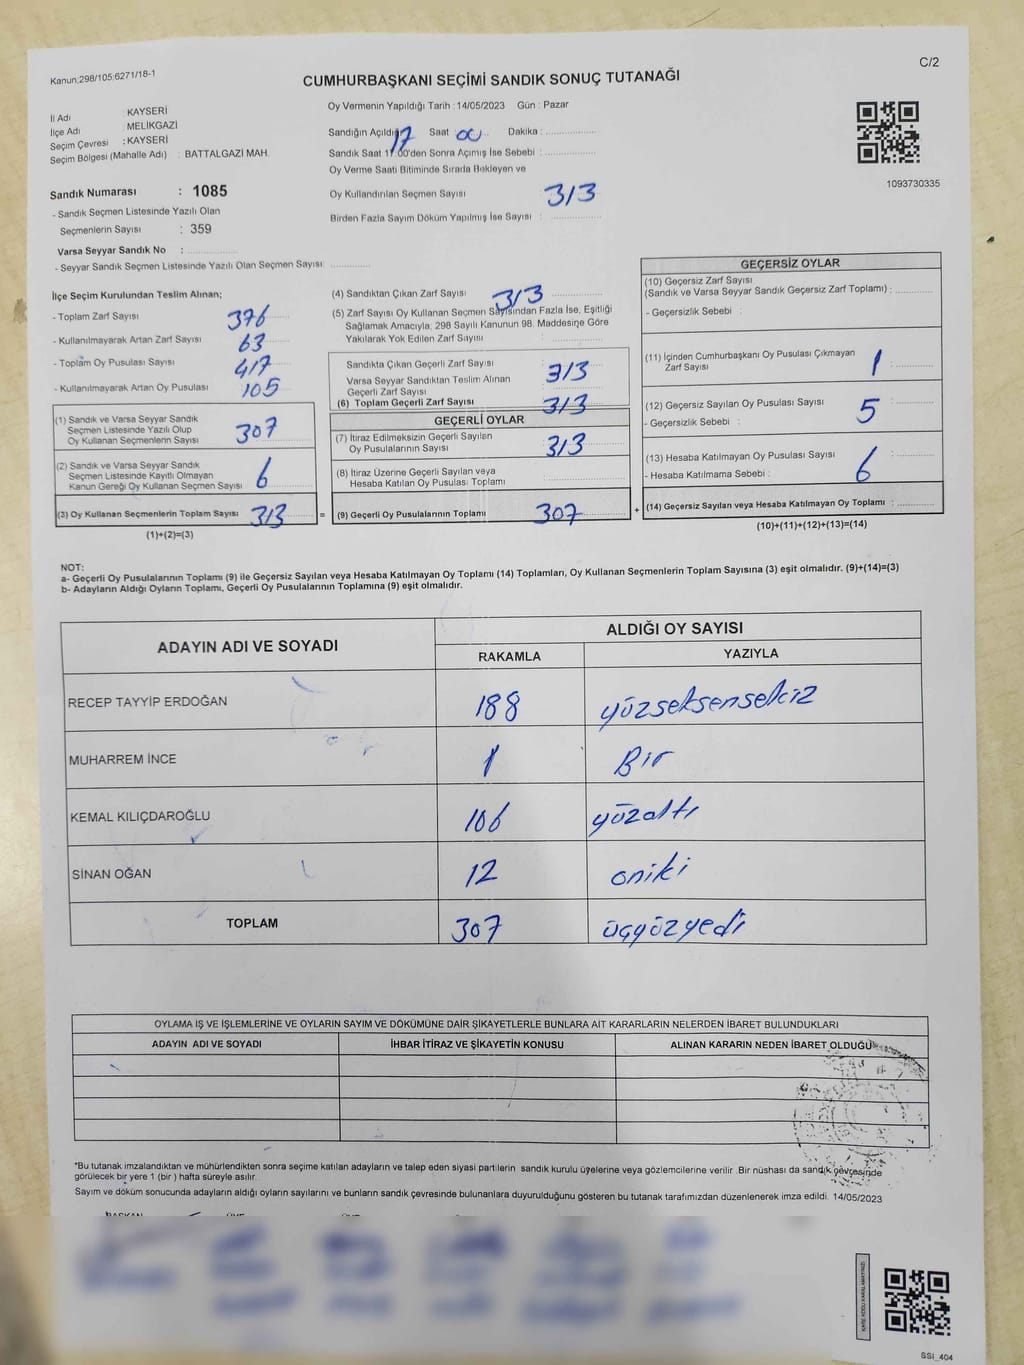 Kanun;298/105;6271/18-1
C/2
CUMHURBAŞKANI SEÇİMİ SANDIK SONUÇ TUTANAĞI
İl Adı : KAYSERİ
İlçe Adı : MELİKGAZİ
Seçim Çevresi : KAYSERİ
Seçim Bölgesi (Mahalle Adı) : BATTALGAZİ MAH.
Sandık Numarası : 1085
- Sandık Seçmen Listesinde Yazılı Olan
Seçmenlerin Sayısı : 359
Varsa Seyyar Sandık No :
- Seyyar Sandık Seçmen Listesinde Yazılı Olan Seçmen Sayısı:
Oy Vermenin Yapıldığı Tarih : 14/05/2023 Gün : Pazar
Sandığın Açıldığı 17 Saat 00 Dakika :
Sandık Saat 17:00'den Sonra Açımış İse Sebebi :
Oy Verme Saati Bitiminde Sırada Bekleyen ve
Oy Kullandırılan Seçmen Sayısı 313
Birden Fazla Sayım Döküm Yapılmış İse Sayısı :
1093730335
İlçe Seçim Kurulundan Teslim Alınan;
- Toplam Zarf Sayısı 376
- Kullanılmayarak Artan Zarf Sayısı 63
- Toplam Oy Pusulası Sayısı 417
- Kullanılmayarak Artan Oy Pusulası 105
(1) Sandık ve Varsa Seyyar Sandık
Seçmen Listesinde Yazılı Olup
Oy Kullanan Seçmenlerin Sayısı 307
(2) Sandık ve Varsa Seyyar Sandık
Seçmen Listesinde Kayıtlı Olmayan
Kanun Gereği Oy Kullanan Seçmen Sayısı 6
(3) Oy Kullanan Seçmenlerin Toplam Sayısı 313
(1)+(2)=(3)
=
(4) Sandıktan Çıkan Zarf Sayısı 313
(5) Zarf Sayısı Oy Kullanan Seçmen Sayısından Fazla İse, Eşitliği
Sağlamak Amacıyla; 298 Sayılı Kanunun 98. Maddesine Göre
Yakılarak Yok Edilen Zarf Sayısı :
Sandıkta Çıkan Geçerli Zarf Sayısı 313
Varsa Seyyar Sandıktan Teslim Alınan
Geçerli Zarf Sayısı
(6) Toplam Geçerli Zarf Sayısı 313
GEÇERLİ OYLAR
(7) İtiraz Edilmeksizin Geçerli Sayılan
Oy Pusulalarının Sayısı 313
(8) İtiraz Üzerine Geçerli Sayılan veya
Hesaba Katılan Oy Pusulası Toplamı
(9) Geçerli Oy Pusulalarının Toplamı 307
+
GEÇERSİZ OYLAR
(10) Geçersiz Zarf Sayısı
(Sandık ve Varsa Seyyar Sandık Geçersiz Zarf Toplamı) :
- Geçersizlik Sebebi :
(11) İçinden Cumhurbaşkanı Oy Pusulası Çıkmayan
Zarf Sayısı 1
(12) Geçersiz Sayılan Oy Pusulası Sayısı 5
- Geçersizlik Sebebi :
(13) Hesaba Katılmayan Oy Pusulası Sayısı
- Hesaba Katılmama Sebebi : 6
(14) Geçersiz Sayılan veya Hesaba Katılmayan Oy Toplamı :
(10)+(11)+(12)+(13)=(14)
NOT:
a- Geçerli Oy Pusulalarının Toplamı (9) ile Geçersiz Sayılan veya Hesaba Katılmayan Oy Toplamı (14) Toplamları, Oy Kullanan Seçmenlerin Toplam Sayısına (3) eşit olmalıdır. (9)+(14)=(3)
b- Adayların Aldığı Oyların Toplamı, Geçerli Oy Pusulalarının Toplamına (9) eşit olmalıdır.
ADAYIN ADI VE SOYADI
ALDIĞI OY SAYISI
RAKAMLA YAZIYLA
RECEP TAYYİP ERDOĞAN 188 yüzseksensekiz
MUHARREM İNCE 1 Bir
KEMAL KILIÇDAROĞLU 106 yüzaltı
SİNAN OĞAN 12 oniki
TOPLAM 307 üçyüzyedi
OYLAMA İŞ VE İŞLEMLERİNE VE OYLARIN SAYIM VE DÖKÜMÜNE DAİR ŞİKAYETLERLE BUNLARA AİT KARARLARIN NELERDEN İBARET BULUNDUKLARI
ADAYIN ADI VE SOYADI İHBAR İTİRAZ VE ŞİKAYETİN KONUSU ALINAN KARARIN NEDEN İBARET OLDUĞU
*Bu tutanak imzalandıktan ve mühürlendikten sonra seçime katılan adayların ve talep eden siyasi partilerin sandık kurulu üyelerine veya gözlemcilerine verilir. Bir nüshası da sandık çevresinde
görülecek bir yere 1 (bir ) hafta süreyle asılır.
Sayım ve döküm sonucunda adayların aldığı oyların sayılarını ve bunların sandık çevresinde bulunanlara duyurulduğunu gösteren bu tutanak tarafımızdan düzenlenerek imza edildi. 14/05/2023
BAŞKAN
SSİ_404